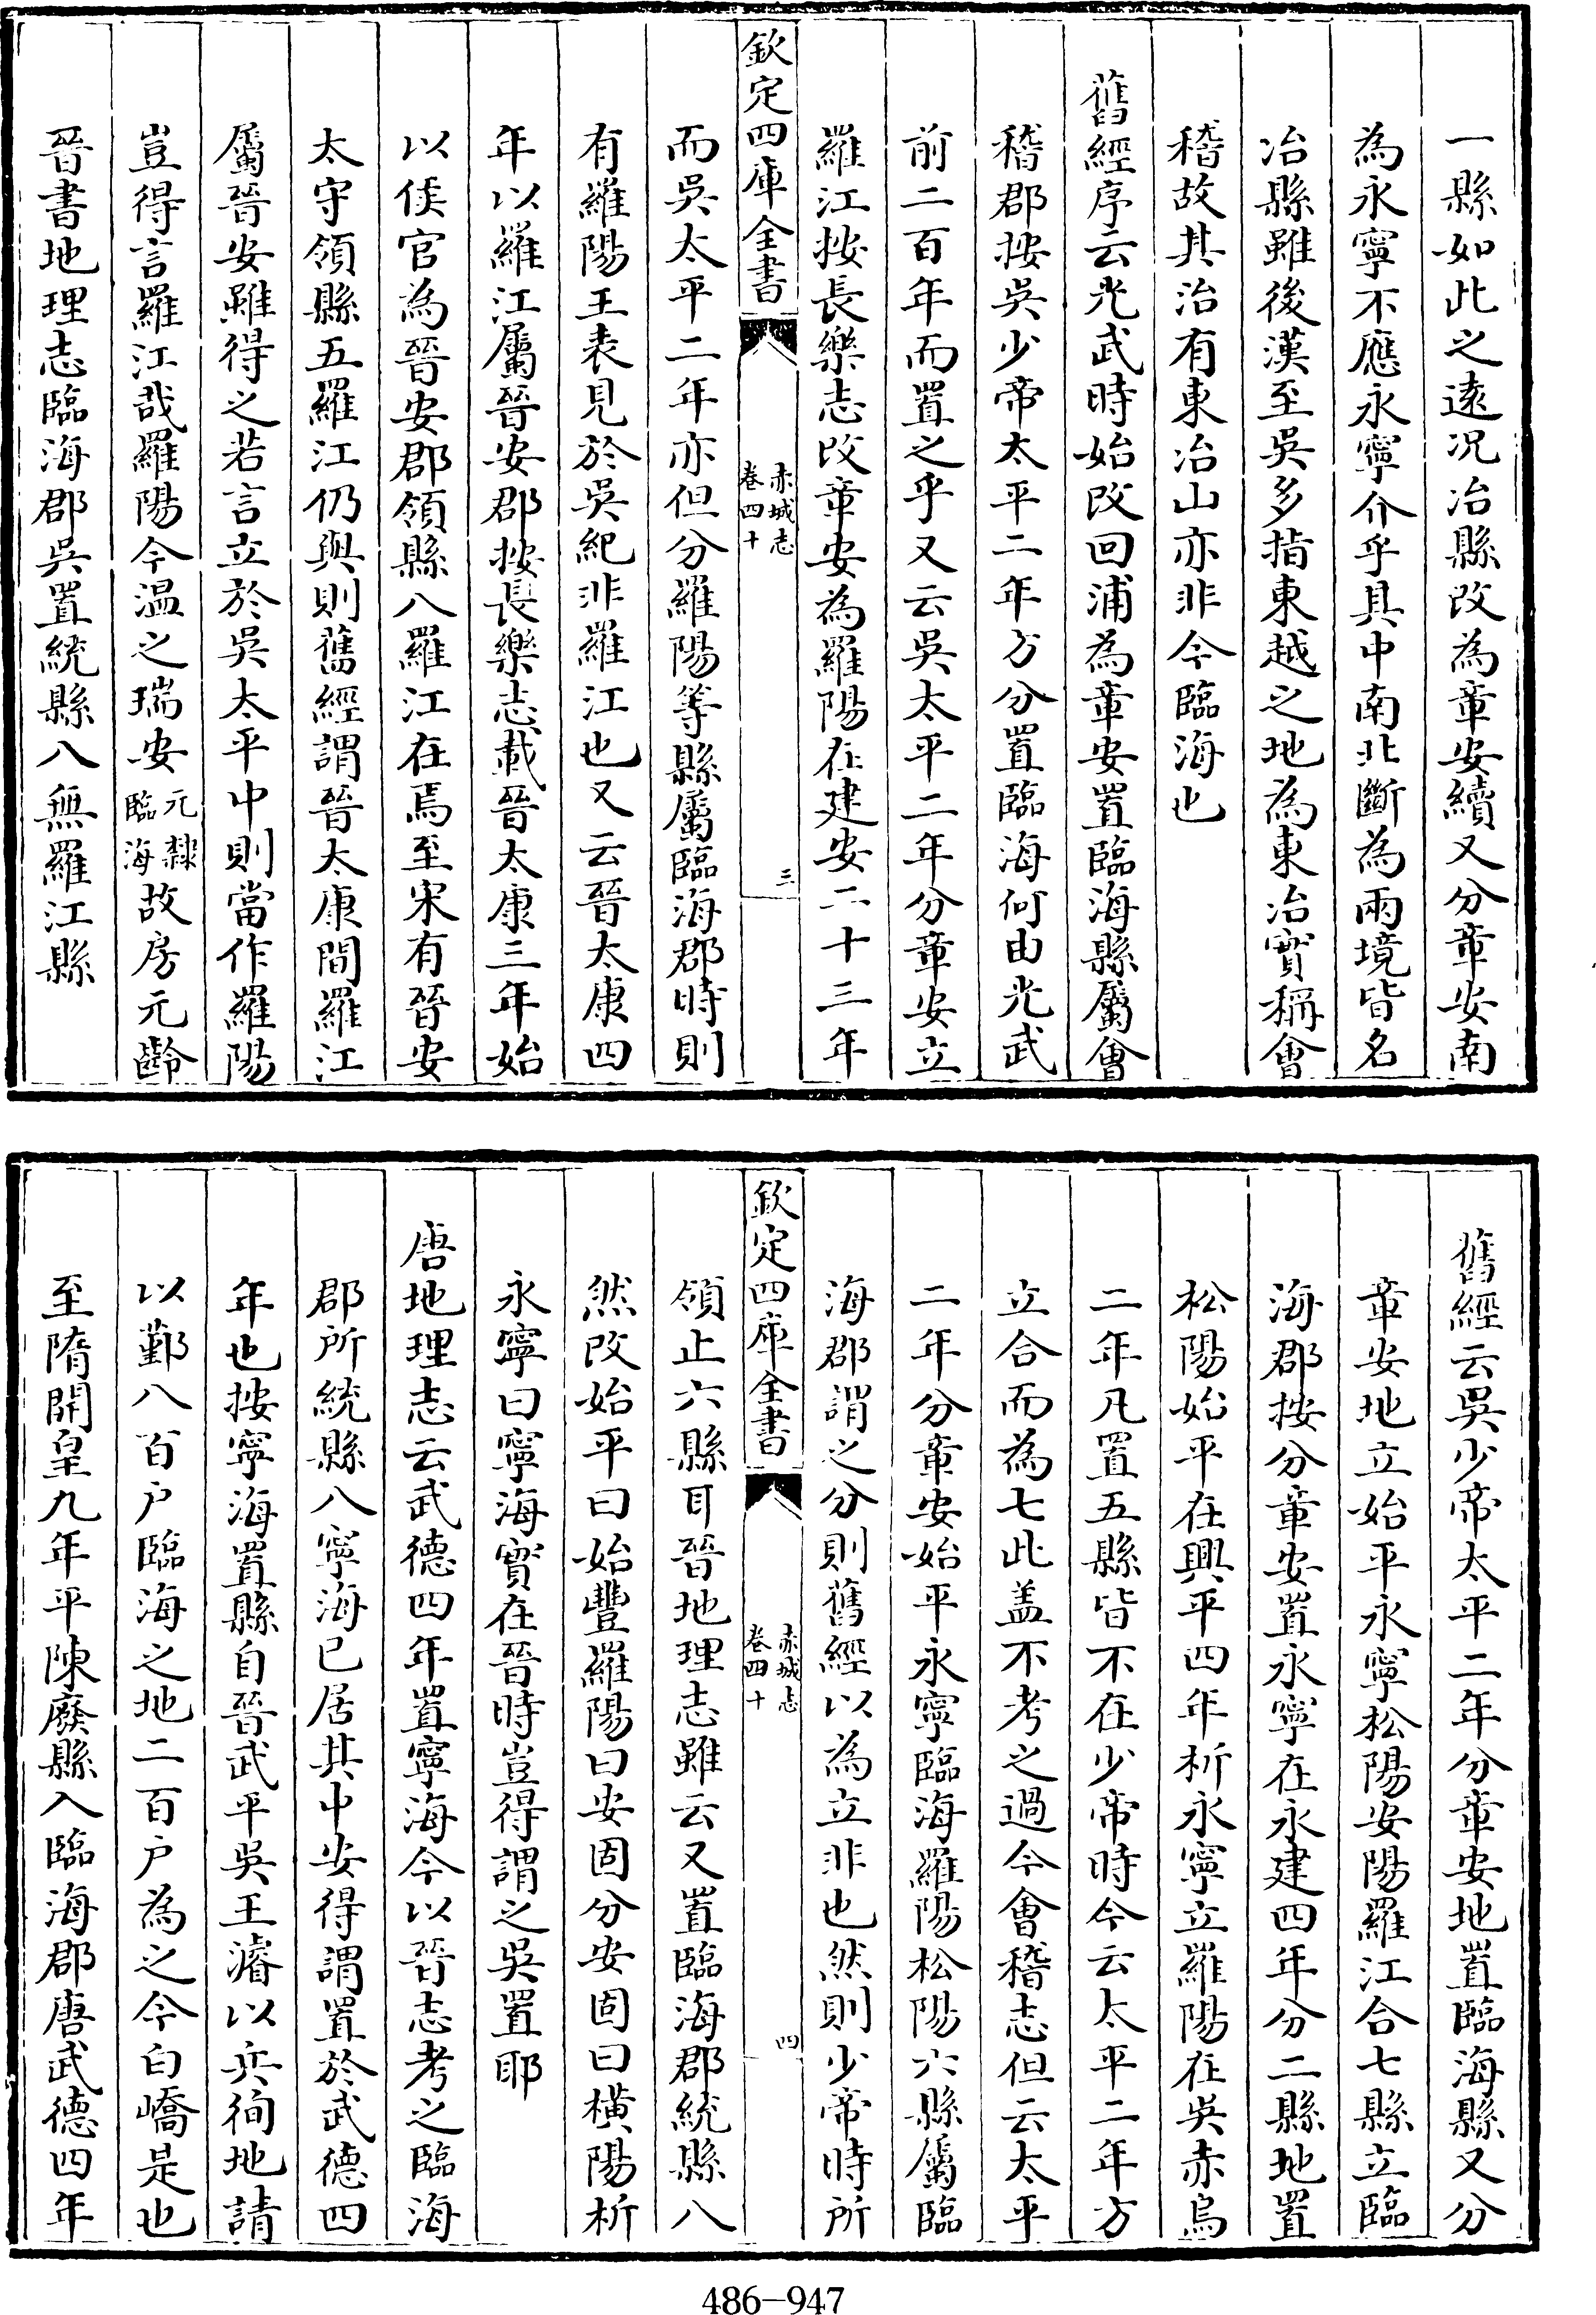 一縣如此之遠况冶縣改為章安續又分章安南
為永寧不應永寧介乎其中南北斷為兩境皆名
冶縣雖後漢至吳多指東越之地為東冶實稱會
稽故其治有東冶山亦非今臨海也
舊經序云光武時始改回浦為章安置臨海縣屬會
稽郡按吳少帝太平二年方分置臨海何由光武
前二百年而置之乎又云吳太平二年分章安立
羅江按長樂志改章安為羅陽在建安二十三年
欽定四庫全書
赤城志
卷四十
三
而吳太平二年亦但分羅陽等縣屬臨海郡時則
有羅陽王表見於吳紀非羅江也又云晉太康四
年以羅江屬晉安郡按長樂志載晉太康三年始
以侯官為晉安郡領縣八羅江在焉至宋有晉安
太守領縣五羅江仍與則舊經謂晉太康間羅江
屬晉安雖得之若言立於吳太平中則當作羅陽
豈得言羅江哉羅陽今温之瑞安元隸臨海故房元齡
晉書地理志臨海郡吳置統縣八無羅江縣
舊經云吳少帝太平二年分章安地置臨海縣又分
章安地立始平永寧松陽安陽羅江合七縣立臨
海郡按分章安置永寧在永建四年分二縣地置
松陽始平在興平四年析永寧立羅陽在吳赤烏
二年凡置五縣皆不在少帝時今云太平二年方
立合而為七此盖不考之過今會稽志但云太平
二年分章安始平永寧臨海羅陽松陽六縣屬臨
海郡謂之分則舊經以為立非也然則少帝時所
欽定四庫全書
赤城志
卷四十
四
領止六縣耳晉地理志雖云又置臨海郡統縣八
然改始平曰始豐羅陽曰安固分安固曰橫陽析
永寧曰寧海實在晉時豈得謂之吳置耶
唐地理志云武德四年置寧海今以晉志考之臨海
郡所統縣八寧海已居其中安得謂置於武德四
年也按寧海置縣自晉武平吳王濬以兵徇地請
以鄞八百户臨海之地二百户為之今白嶠是也
至隋開皇九年平陳廢縣入臨海郡唐武德四年
486-947